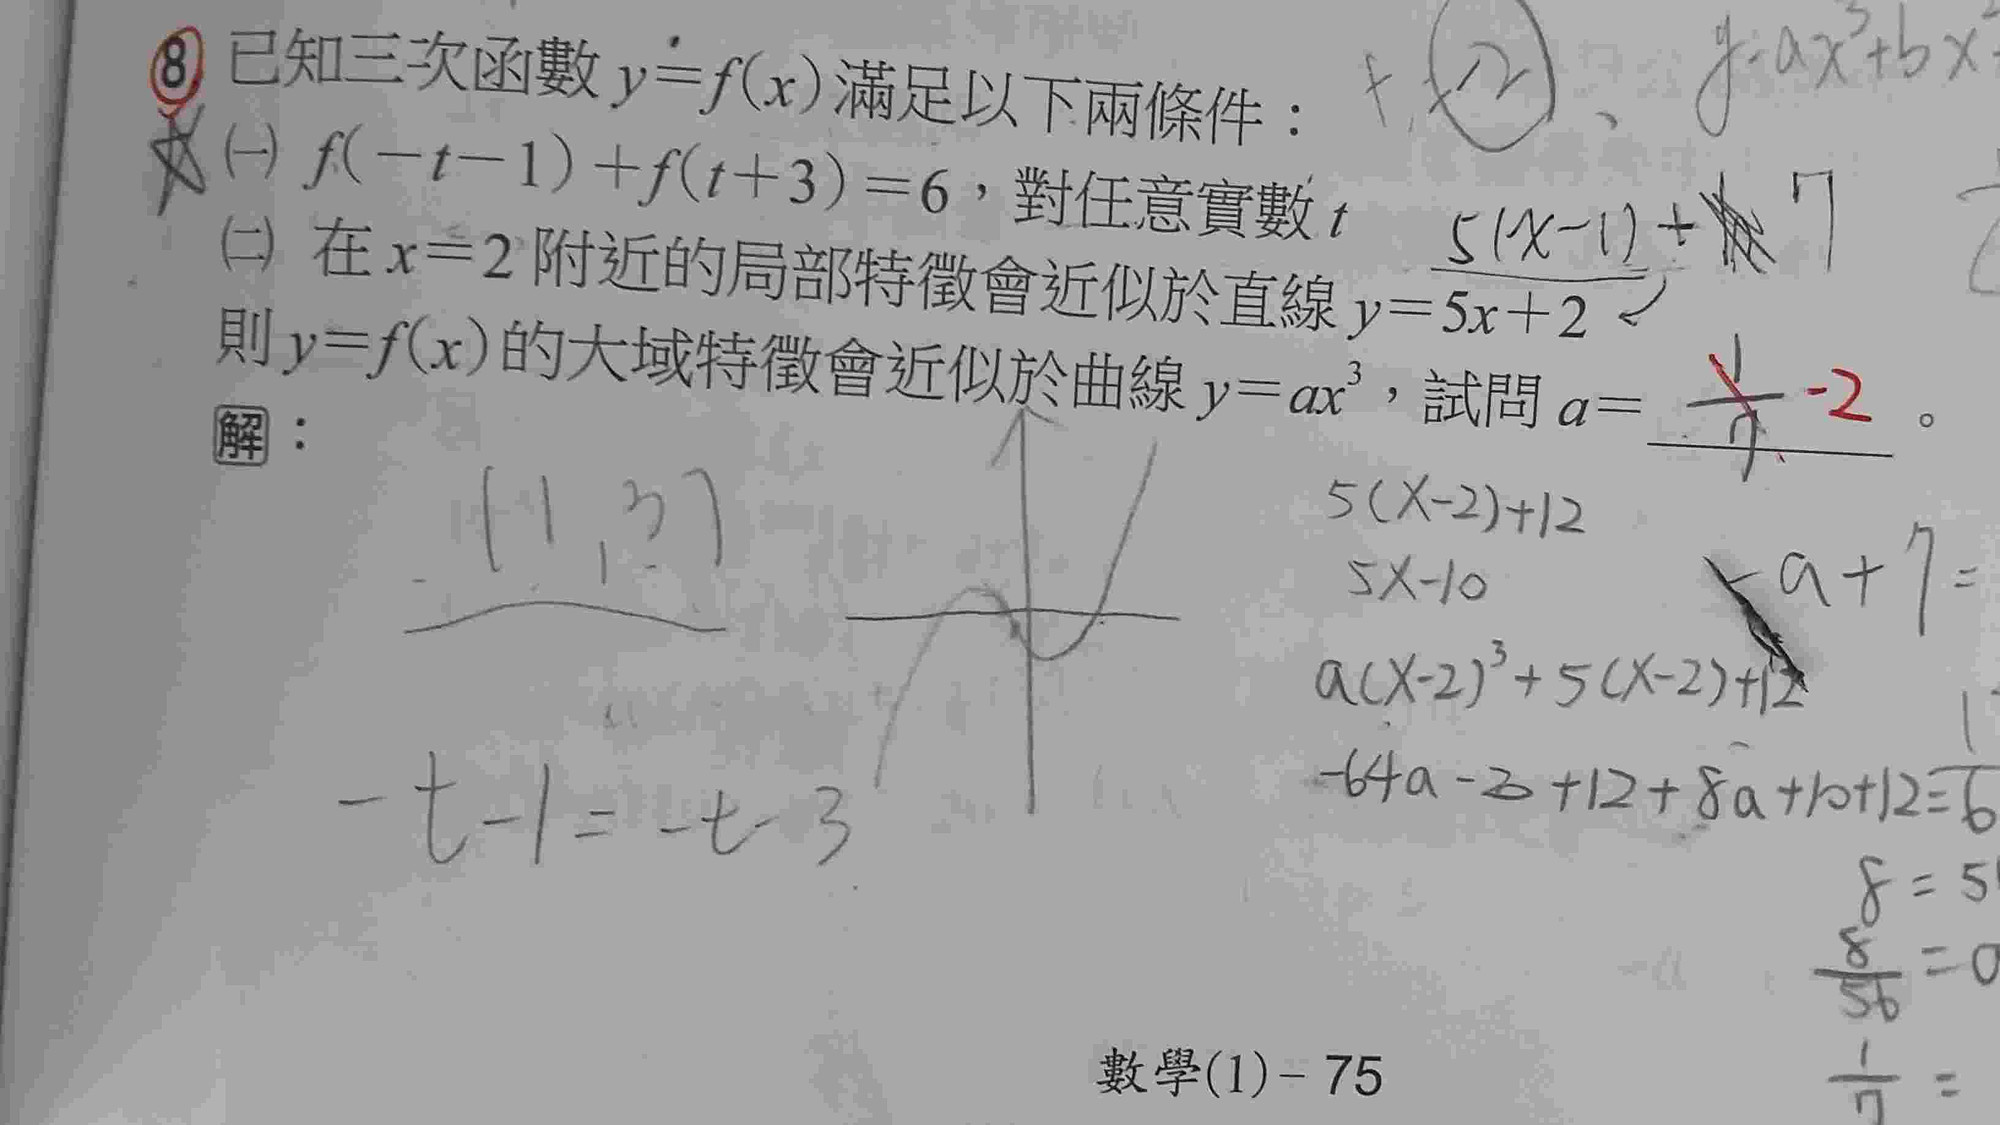 ⑧ 已知三次函數 y=f(x) 滿足以下兩條件：
㈠ f(-t-1)+f(t+3)=6，對任意實數 t
㈡ 在 x=2 附近的局部特徵會近似於直線 y=5x+2
則 y=f(x) 的大域特徵會近似於曲線 y=ax³，試問 a= 1/7 -2 。
解：
y=ax³+bx²
5(x-1)+ 7
(1,3)
-t-1=-t-3
5(x-2)+12
5x-10
-a+7=
a(x-2)³+5(x-2)+12
-64a-20+12+8a+10+12=6
8=5
8/56=a
1/7=
數學(1)-75